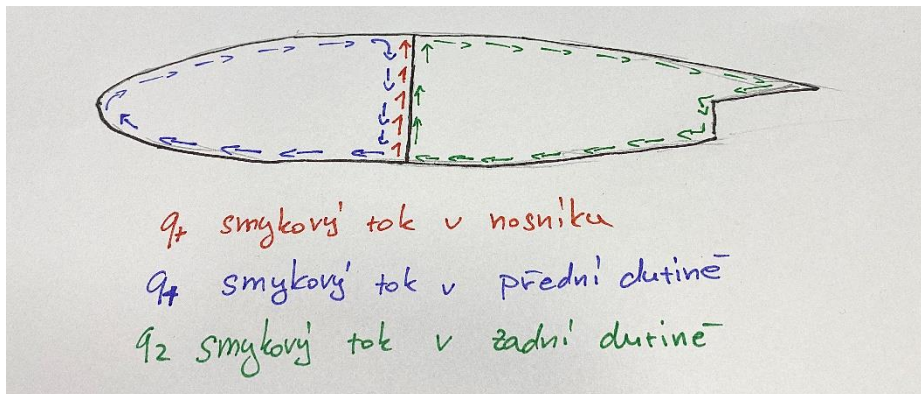 q₁ smykový tok v nosníku
q₁ smykový tok v přední dutině
q₂ smykový tok v zadní dutině